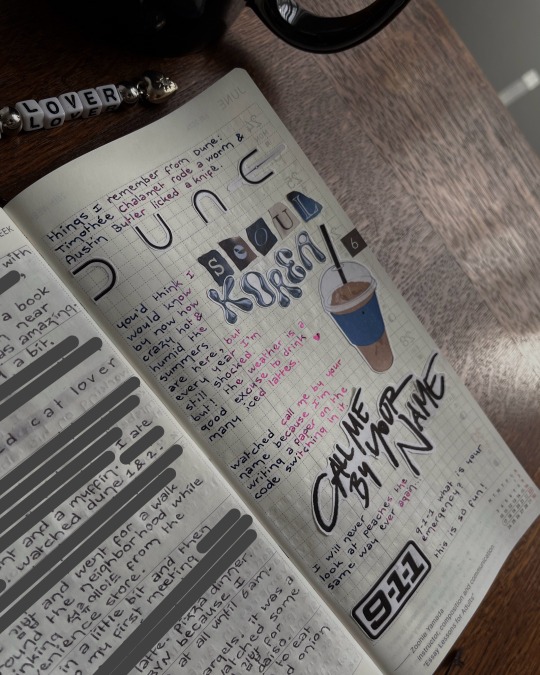 LOVER
JUNE
things I remember from Dune:
Timothée Chalamet rode a worm &
Austin Butler licked a knife.
DUNE
SEOUL
KOREA
6
you'd think I
would know
by now how
crazy hot &
humid the
summers
are here? but
every year I'm
still shocked.
but! the weather is a
good excuse to drink
many iced lattes. ♥
watched call me by your
name because I'm
writing a paper on the
code switching in it
CALL ME
BY YOUR
NAME
I will never
look at peaches the
same way ever again.
9-1-1 what is your
emergency?
this is so fun!
9-1-1
Zoonie Yamada
instructor, composition and communication
"Essay Lessons for Adults"
EEK
with
a book
near
as amazing.
a bit.
d cat lover
I ate
and a muffin.
watched dune 1 & 2.
and went for a walk
the neighborhood while
from the
in a little bit and then
my first meeting
latte. pizza dinner
because I
at all until 6am.
it was a
watched some
daiso
to eat
onion